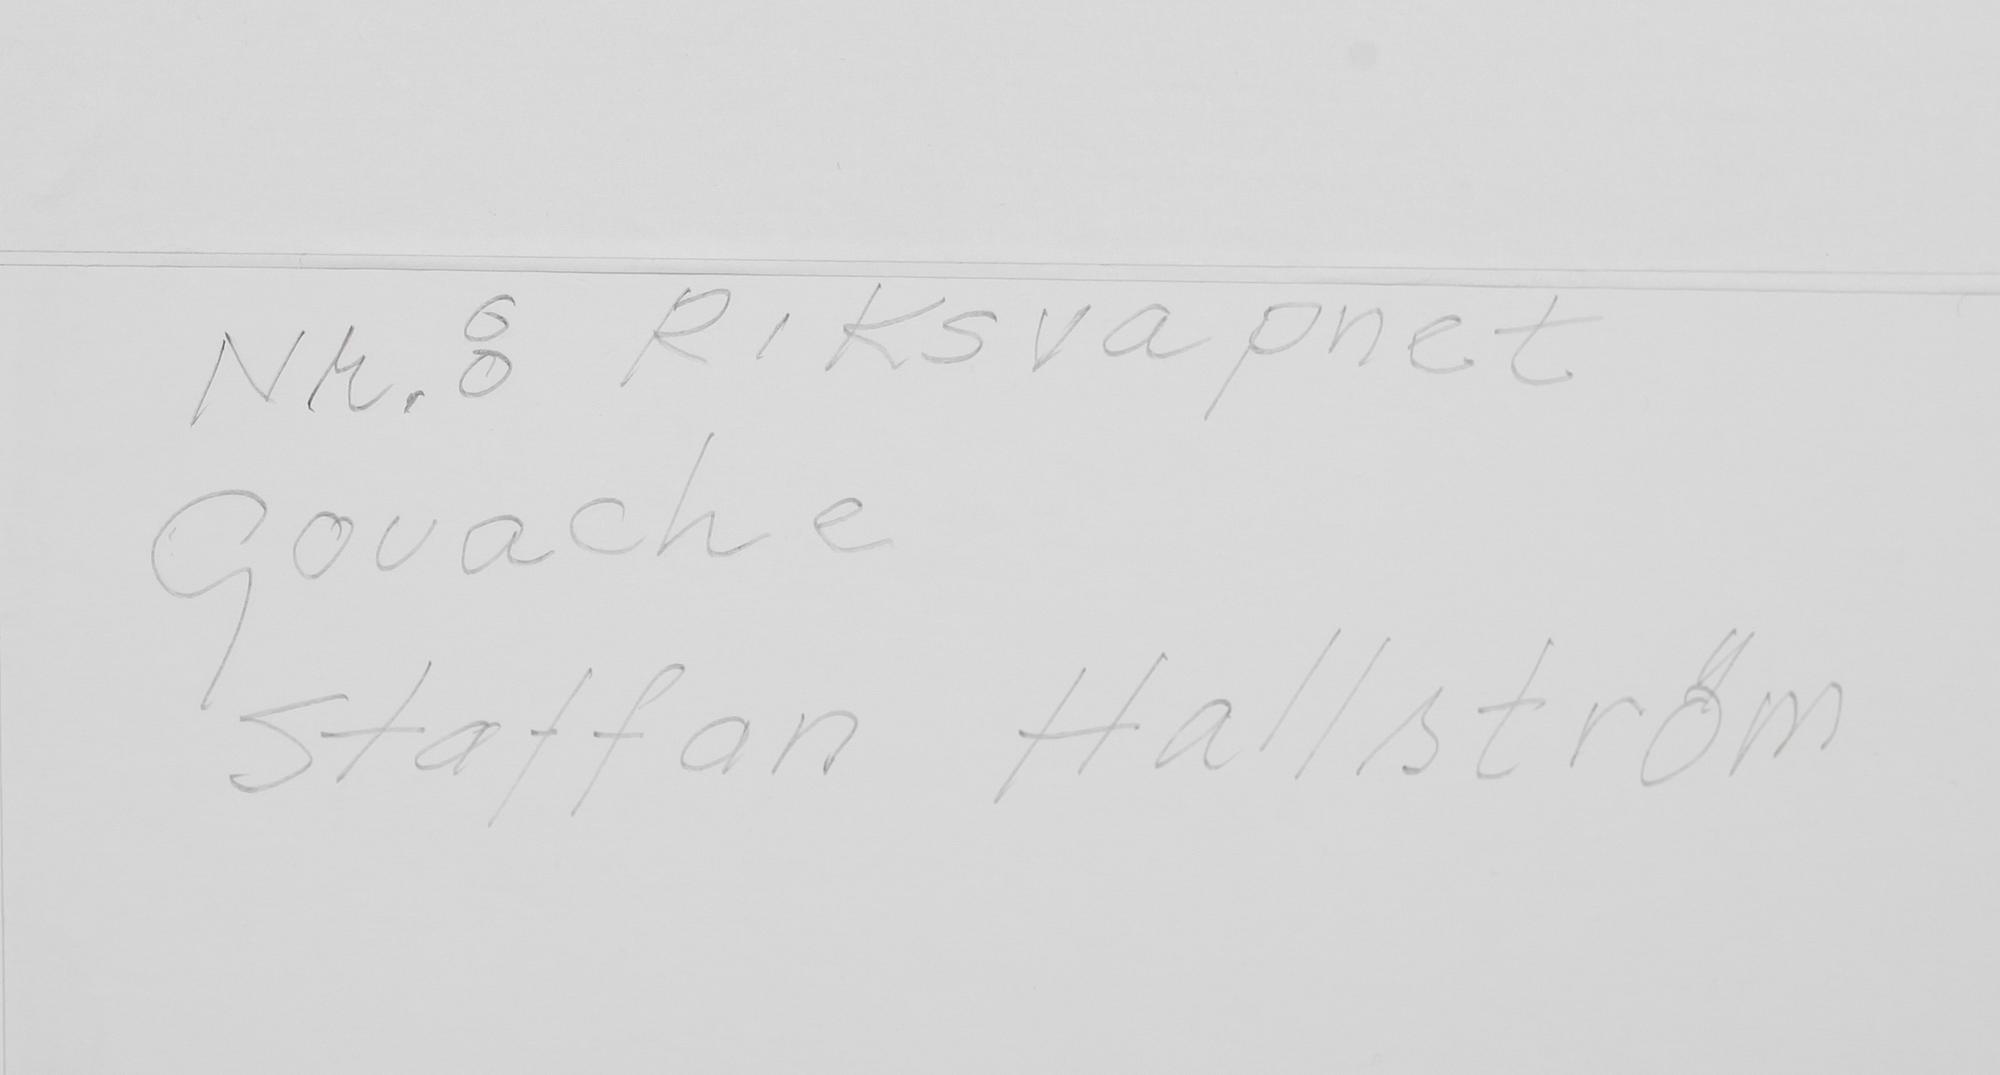 Nr. 8 Riksvapnet
Gouache
Staffan Hallström